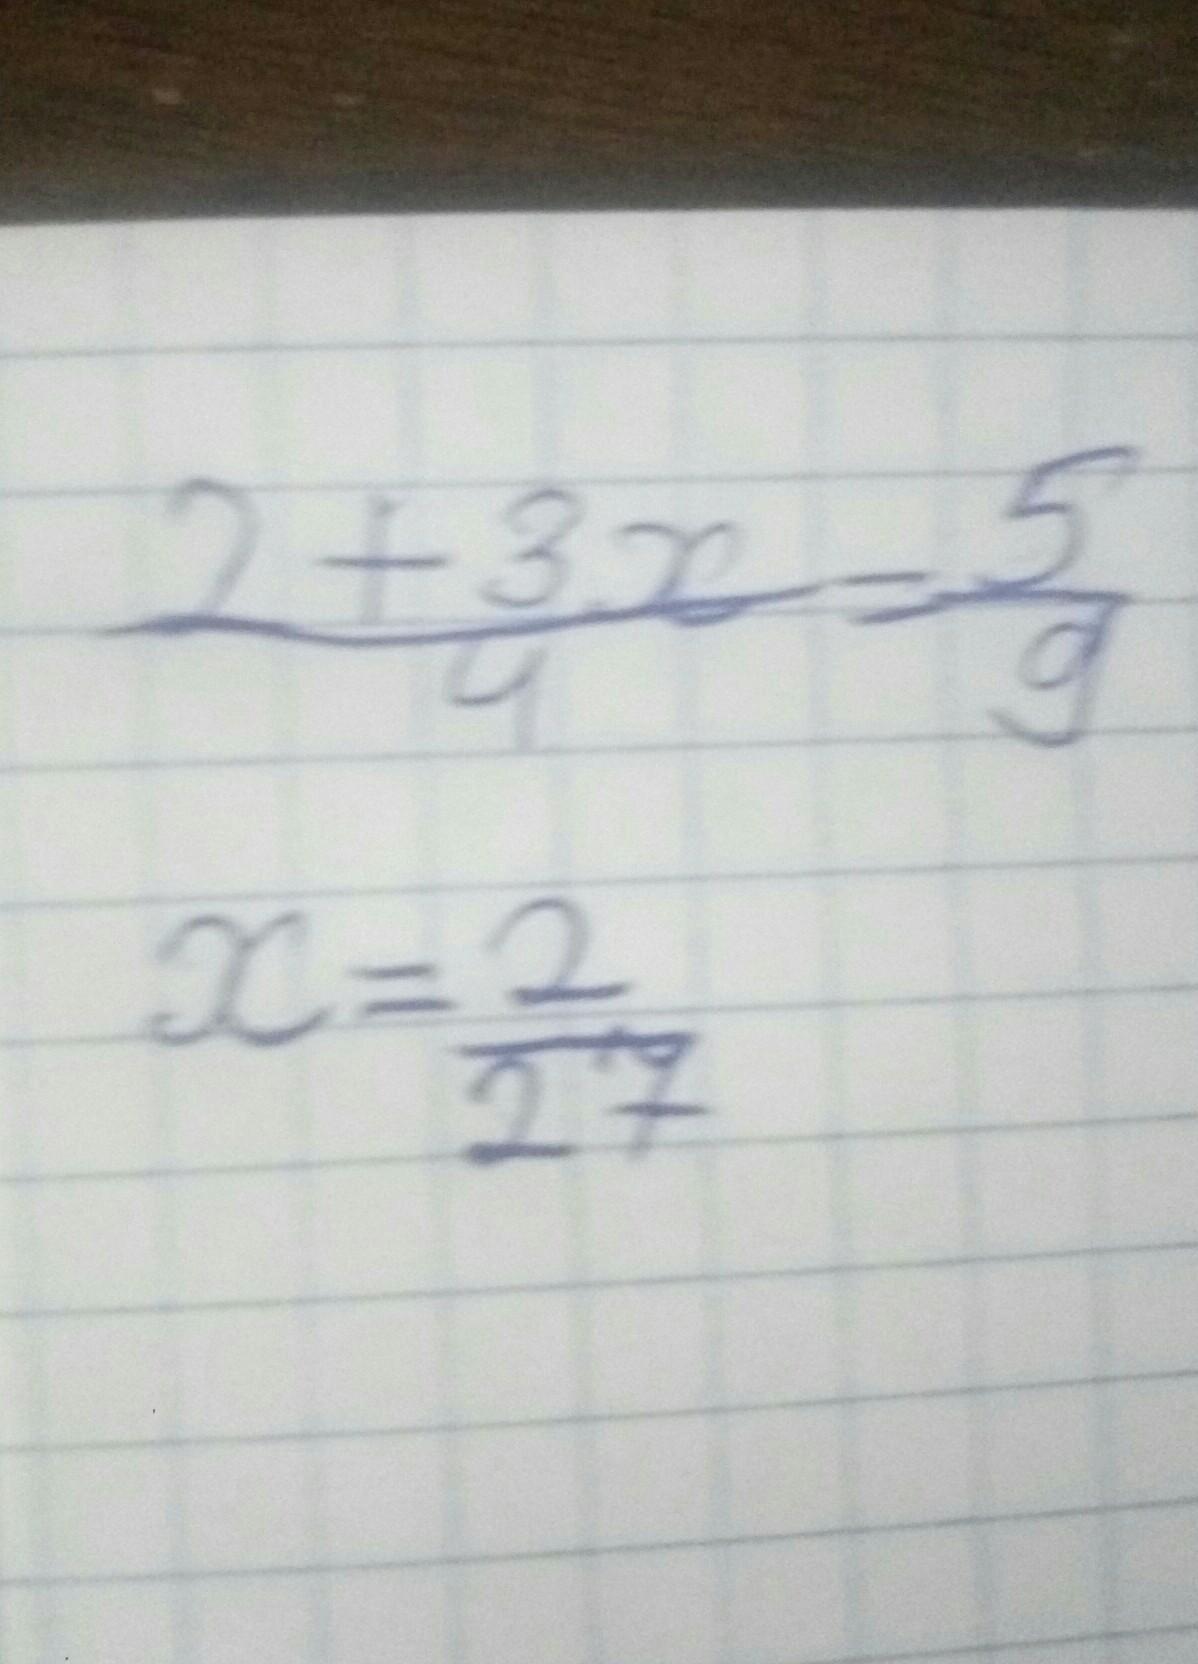 2 + 3x / 4 = 5 / 9
x = 2 / 27